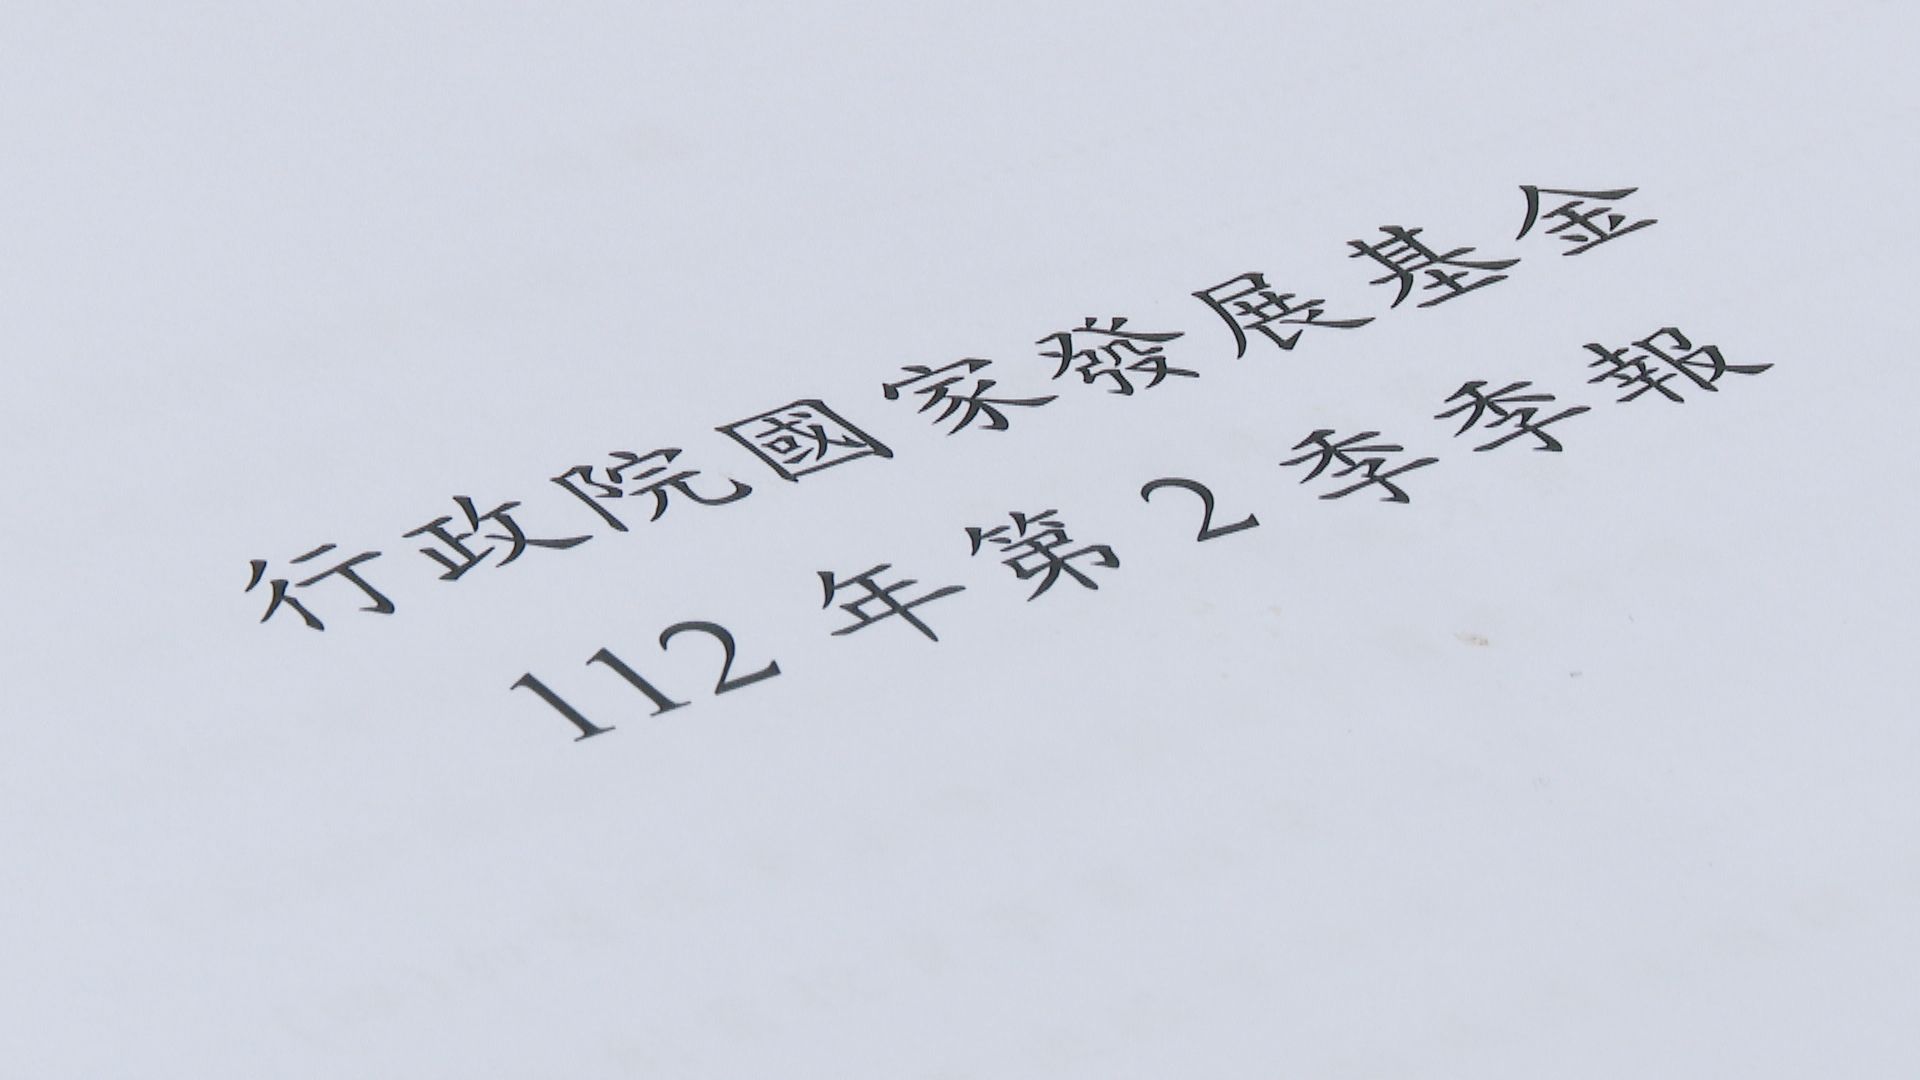 行政院國家發展基金
112年第2季季報